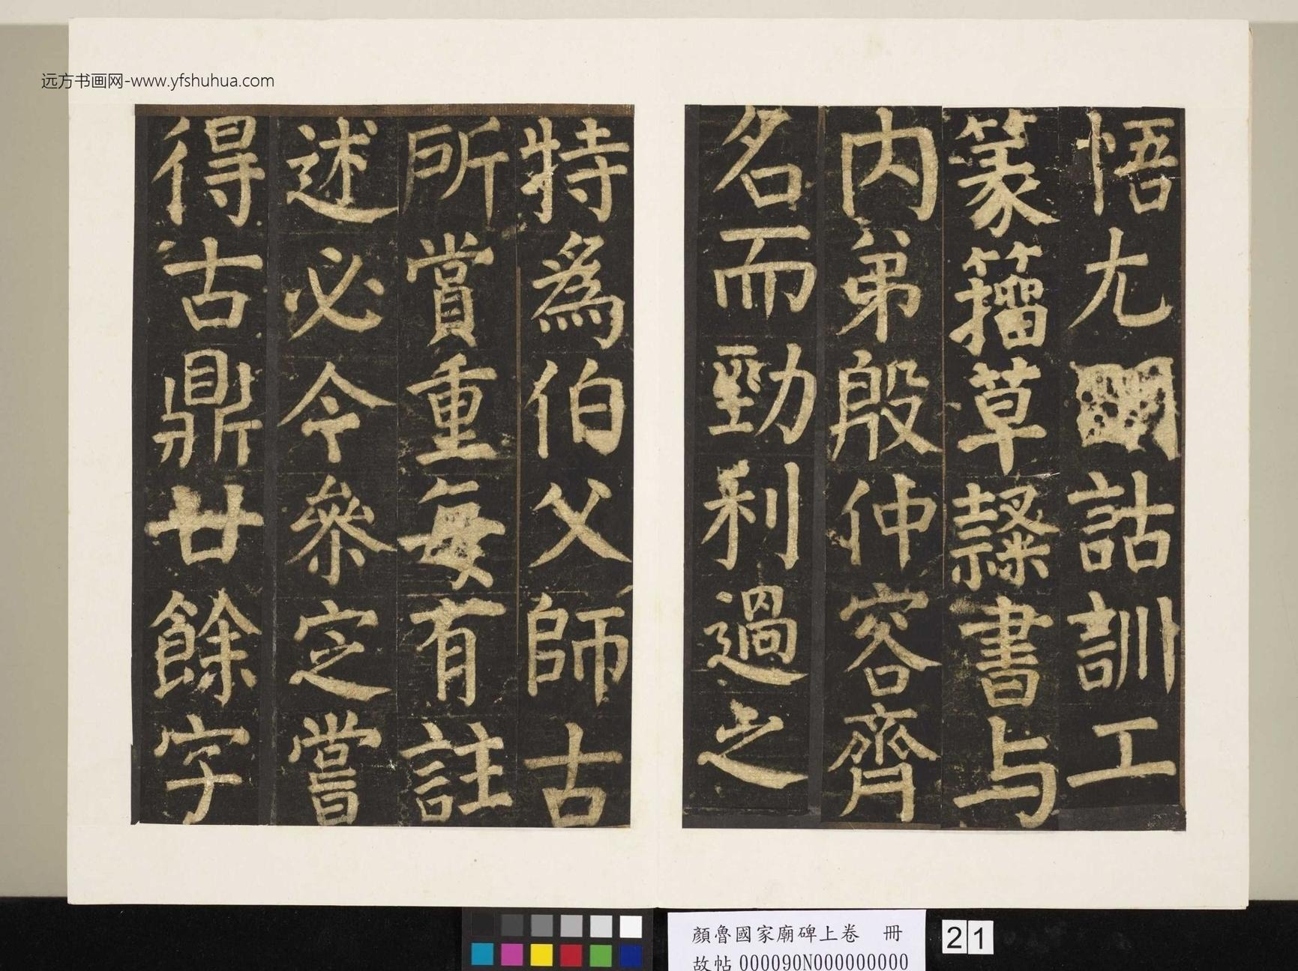 远方书画网-www.yfshuhua.com
悟尤詁訓工
篆籀草隸書与
内弟殷仲容齊
名而勁利過之
特為伯父師古
所賞重每有註
述必令叅定嘗
得古鼎廿餘字
顏魯國家廟碑上卷 冊
故帖 000090N000000000
21